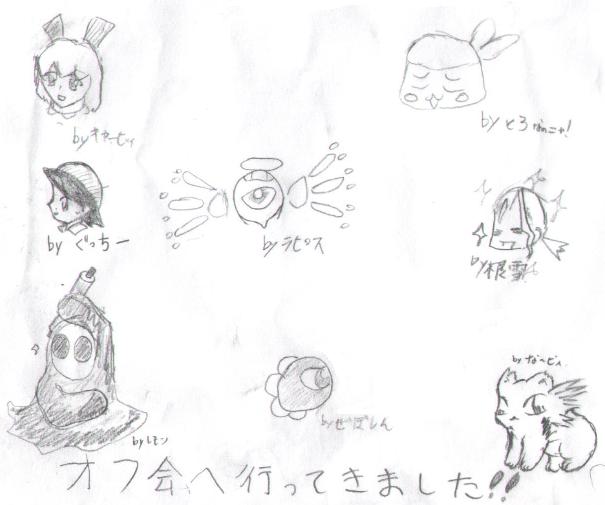 by キャービィ
by とろ なのニャ!
by ぐっちー
by ラピス
by 根雪
by なーびぃ
by レモン
by ぜぱしん
オフ会へ行ってきました!!